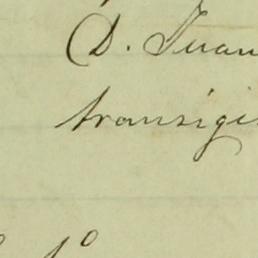 D. Juan
transigi